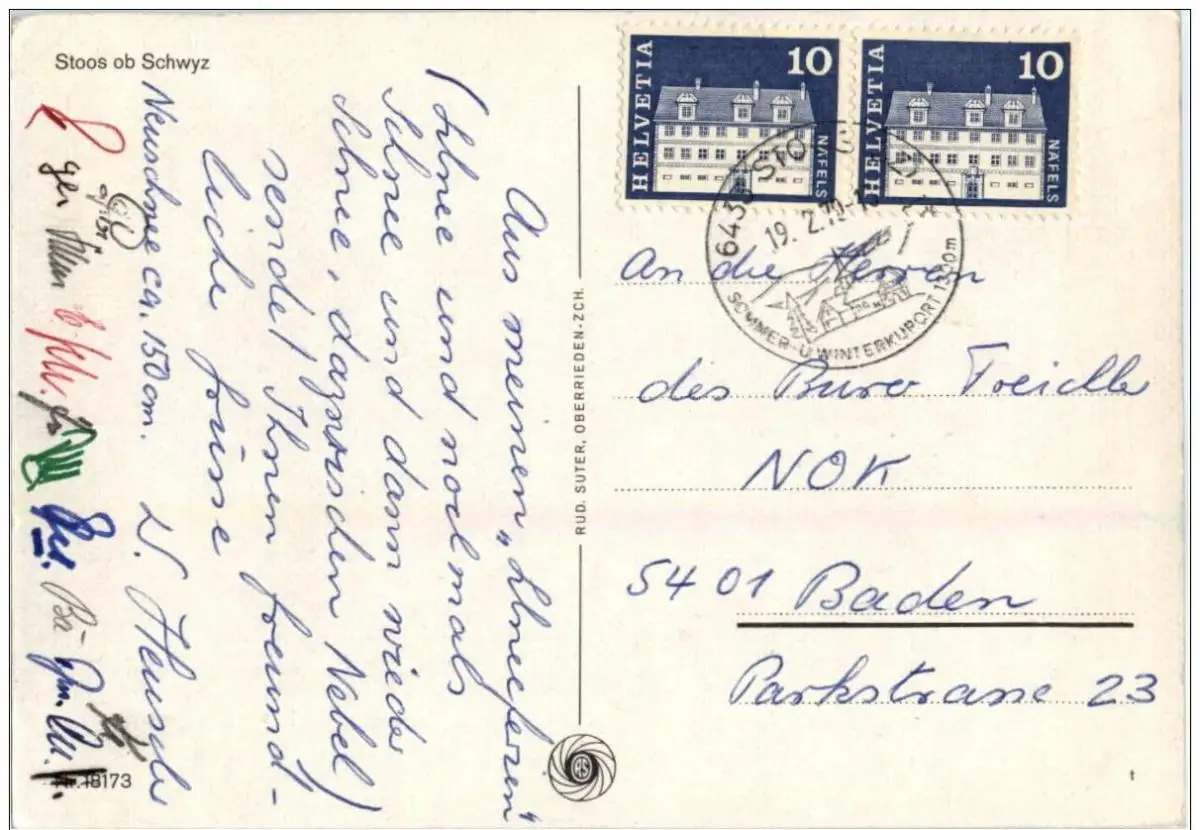 Stoos ob Schwyz
Aus meinen „Schneeferien“
(Schnee und nochmals
Schnee und dann wieder
Schnee, dazwischen Nebel)
sendet Ihnen freund-
liche Grüsse
Neuschnee ca. 150 cm.
HELVETIA 10 NÄFELS
HELVETIA 10 NÄFELS
6433 STOOS
19. 2.79
SOMMER- U WINTERKURORT 1300m
An die Herren
des Büro Treichler
NOK
5401 Baden
Parkstrasse 23
RUD. SUTER, OBERRIEDEN-ZCH.
RS
Nr. 18173
t